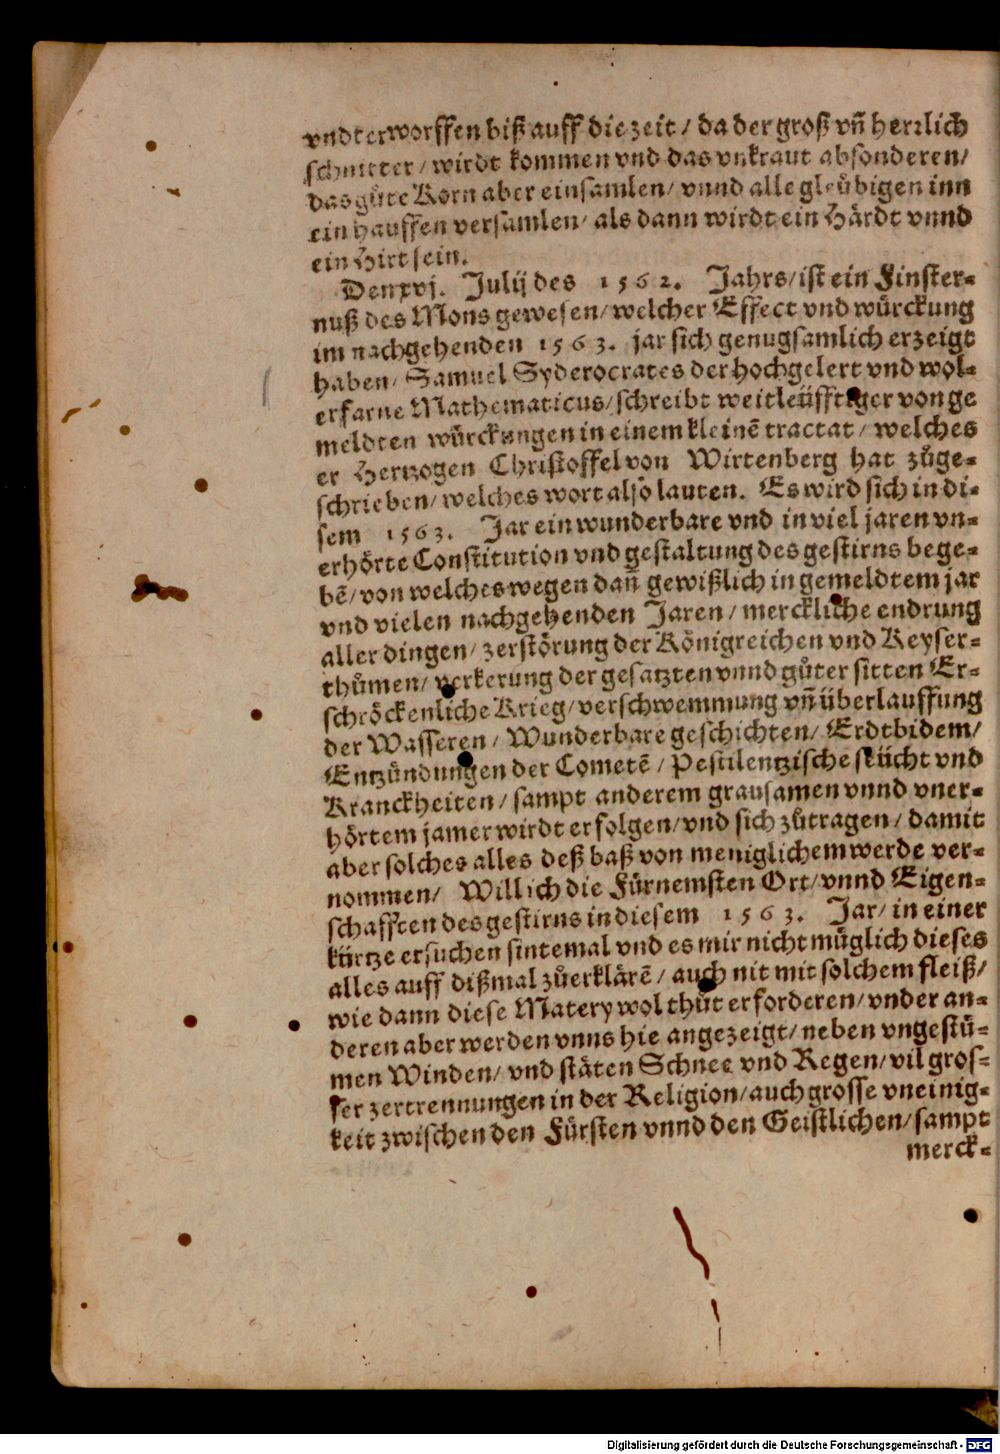 vndterworffen biß auff die zeit / da der groß vñ herꝛlich
schnitter / wirdt kommen vnd das vnkraut absonderen /
das gůte Korn aber einsamlen / vnnd alle gleübigen inn
ein hauffen versamlen / als dann wirdt ein Härdt vnnd
ein Hirt sein.
Den xvj. Julij des 1562. Jahrs / ist ein Finster⸗
nuß des Mons gewesen / welcher Effect vnd würckung
im nachgehenden 1563. jar sich genugsamlich erzeigt
haben / Samuel Syderocrates der hochgelert vnd wol⸗
erfarne Mathematicus / schreibt weitleüfftiger von ge
meldten würckungen in einem kleinẽ tractat / welches
er Hertzogen Christoffel von Wirtenberg hat zůge⸗
schrieben / welches wort also lauten. Es wird sich in di⸗
sem 1563. Jar ein wunderbare vnd in viel jaren vn⸗
erhörte Constitution vnd gestaltung des gestirns bege⸗
bẽ / von welches wegen dañ gewißlich in gemeldtem jar
vnd vielen nachgehenden Jaren / merckliche endrung
aller dingen / zerstörung der Königreichen vnd Keyser⸗
thůmen / verkerung der gesatzten vnnd gůter sitten Er⸗
schröckenliche Krieg / verschwemmung vñ überlauffung
der Wasseren / Wunderbare geschichten / Erdtbidem /
Entzündungen der Cometẽ / Pestilentzische sücht vnd
Kranckheiten / sampt anderem grausamen vnnd vner⸗
hörtem jamer wirdt erfolgen / vnd sich zůtragen / damit
aber solches alles deß baß von meniglichem werde ver⸗
nommen / Will ich die Fürnemsten Ort / vnnd Eigen⸗
schafften des gestirns in diesem 1563. Jar / in einer
kürtze ersuchen sintemal vnd es mir nicht müglich dieses
alles auff dißmal zůerklärẽ / auch nit mit solchem fleiß /
wie dann diese Matery wol thůt erforderen / vnder an⸗
deren aber werden vnns hie angezeigt / neben vngestü⸗
men Winden / vnd stäten Schnee vnd Regen / vil gros⸗
ser zertrennungen in der Religion / auch grosse vneinig⸗
keit zwischen den Fürsten vnnd den Geistlichen / sampt
merck⸗
Digitalisierung gefördert durch die Deutsche Forschungsgemeinschaft - DFG